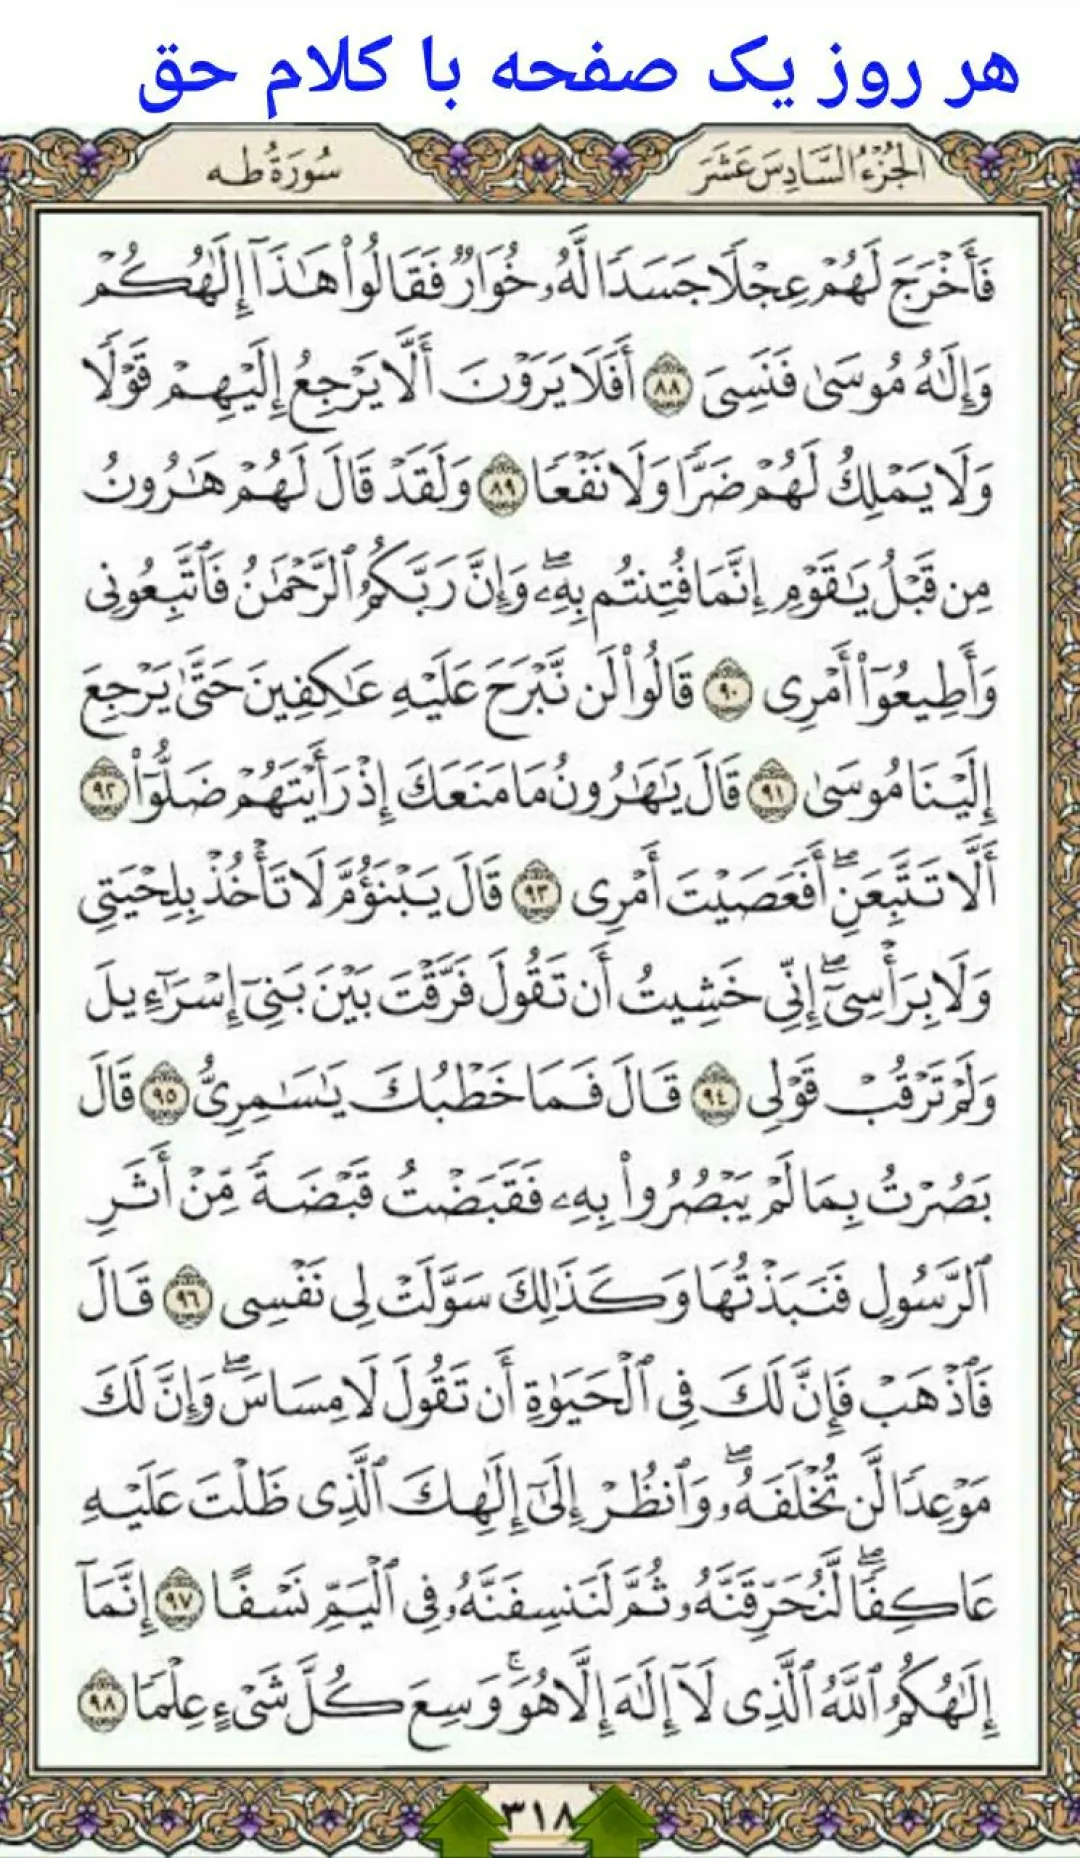 هر روز یک صفحه با کلام حق
الجُزءُ السَّادِسَ عَشَرَ
سُورَةُ طه
فَأَخْرَجَ لَهُمْ عِجْلًا جَسَدًا لَّهُۥ خُوَارٌ فَقَالُوا۟ هَـٰذَآ إِلَـٰهُكُمْ
وَإِلَـٰهُ مُوسَىٰ فَنَسِىَ ٨٨ أَفَلَا يَرَوْنَ أَلَّا يَرْجِعُ إِلَيْهِمْ قَوْلًا
وَلَا يَمْلِكُ لَهُمْ ضَرًّا وَلَا نَفْعًا ٨٩ وَلَقَدْ قَالَ لَهُمْ هَـٰرُونُ
مِن قَبْلُ يَـٰقَوْمِ إِنَّمَا فُتِنتُم بِهِۦ ۖ وَإِنَّ رَبَّكُمُ ٱلرَّحْمَـٰنُ فَٱتَّبِعُونِى
وَأَطِيعُوٓا۟ أَمْرِى ٩٠ قَالُوا۟ لَن نَّبْرَحَ عَلَيْهِ عَـٰكِفِينَ حَتَّىٰ يَرْجِعَ
إِلَيْنَا مُوسَىٰ ٩١ قَالَ يَـٰهَـٰرُونُ مَا مَنَعَكَ إِذْ رَأَيْتَهُمْ ضَلُّوٓا۟ ٩٢
أَلَّا تَتَّبِعَنِ ۖ أَفَعَصَيْتَ أَمْرِى ٩٣ قَالَ يَبْنَؤُمَّ لَا تَأْخُذْ بِلِحْيَتِى
وَلَا بِرَأْسِىٓ ۖ إِنِّى خَشِيتُ أَن تَقُولَ فَرَّقْتَ بَيْنَ بَنِىٓ إِسْرَٰٓءِيلَ
وَلَمْ تَرْقُبْ قَوْلِى ٩٤ قَالَ فَمَا خَطْبُكَ يَـٰسَـٰمِرِىُّ ٩٥ قَالَ
بَصُرْتُ بِمَا لَمْ يَبْصُرُوا۟ بِهِۦ فَقَبَضْتُ قَبْضَةً مِّنْ أَثَرِ
ٱلرَّسُولِ فَنَبَذْتُهَا وَكَذَٰلِكَ سَوَّلَتْ لِى نَفْسِى ٩٦ قَالَ
فَٱذْهَبْ فَإِنَّ لَكَ فِى ٱلْحَيَوٰةِ أَن تَقُولَ لَا مِسَاسَ ۖ وَإِنَّ لَكَ
مَوْعِدًا لَّن تُخْلَفَهُۥ ۖ وَٱنظُرْ إِلَىٰٓ إِلَـٰهِكَ ٱلَّذِى ظَلْتَ عَلَيْهِ
عَاكِفًا ۖ لَّنُحَرِّقَنَّهُۥ ثُمَّ لَنَنسِفَنَّهُۥ فِى ٱلْيَمِّ نَسْفًا ٩٧ إِنَّمَآ
إِلَـٰهُكُمُ ٱللَّهُ ٱلَّذِى لَآ إِلَـٰهَ إِلَّا هُوَ ۚ وَسِعَ كُلَّ شَىْءٍ عِلْمًا ٩٨
٣١٨